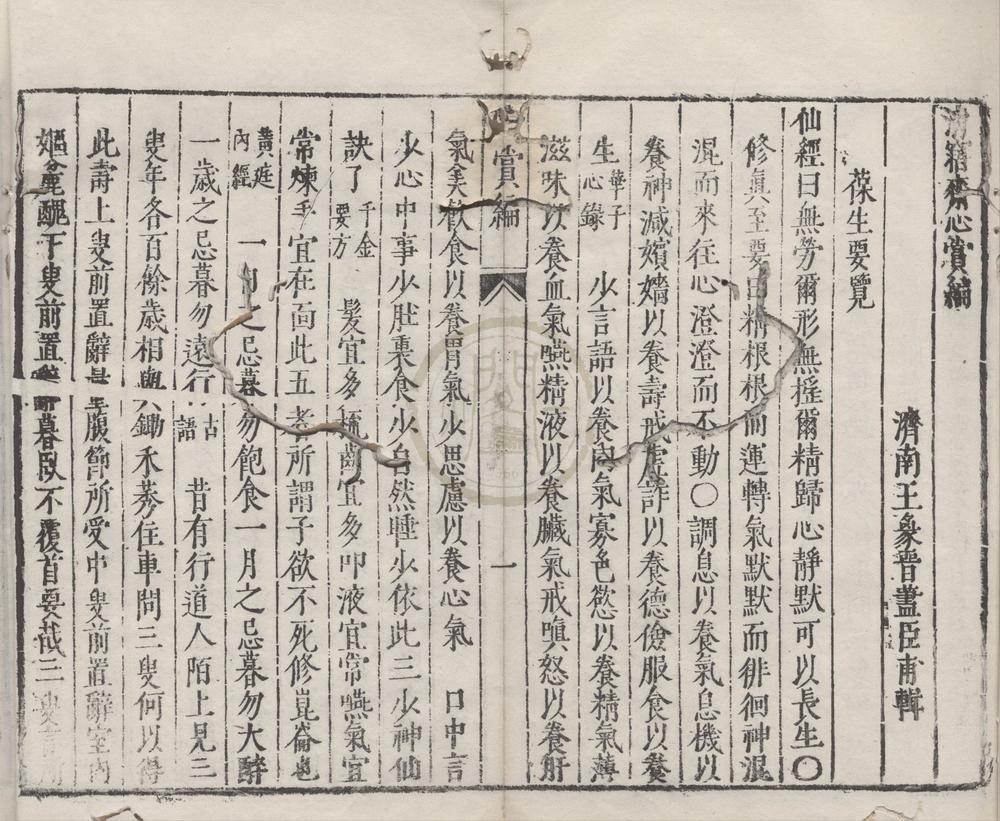 清寤齋心賞編
濟南王象晉藎臣甫輯
葆生要覽
仙經曰無勞爾形無搖爾精歸心靜默可以長生〇
修真至要曰精根根而運轉氣默默而徘徊神混
混而來往心澄澄而不動〇調息以養氣息機以
養神減嬪嬙以養壽戒虛詐以養德儉服食以養
生華子心錄 少言語以養內氣寡色慾以養精氣薄
滋味以養血氣嚥精液以養臟氣戒嗔怒以養肝
賞編
一
氣美飲食以養胃氣少思慮以養心氣 口中言
少心中事少肚裏食少自然睡少依此三少神仙
訣了千金要方 髮宜多梳齒宜多叩液宜常嚥氣宜
常煉手宜在面此五者所謂子欲不死修崑崙也
黃庭內經 一日之忌暮勿飽食一月之忌暮勿大醉
一歲之忌暮勿遠行古語 昔有行道人陌上見三
叟年各百餘歲相與鋤禾莠住車問三叟何以得
此壽上叟前置辭 腹節所受中叟前置辭室內
嫗麄醜下叟前置 暮臥不覆首要哉三叟言